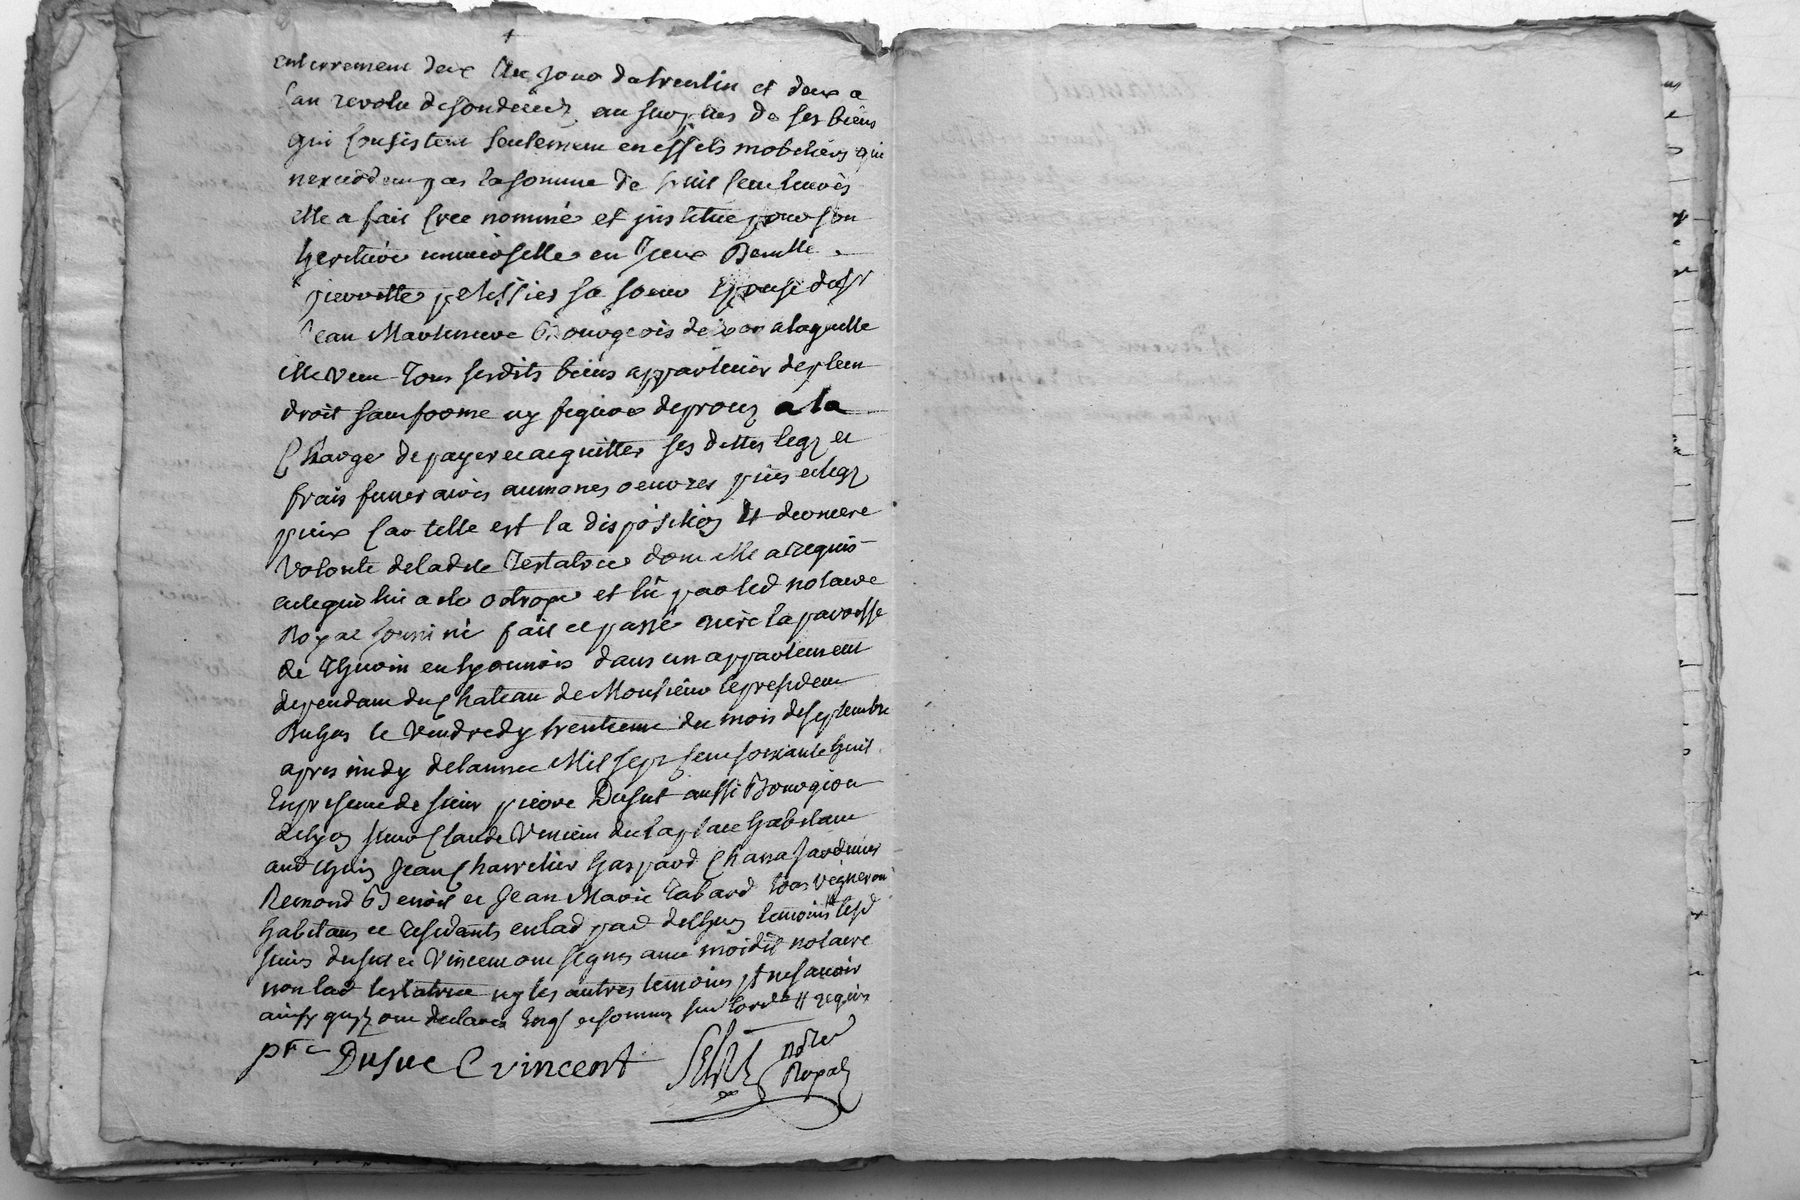 enterrement deux Au jour du trentin et deux a
l'an revolu de son deced. au surplus de ses biens
qui Consistent seulement en effets mobeliers qui
nexcedent pas la somme de huit Cent livres
elle a fait Cree nommé et jnstitue pour son
heritiere universelle
pierrette pelissier sa soeur Epouse du Sr
Jean Bourgeois de a laquelle
elle veut Tous sesdits biens appartenir de plein
droit sans forme ny figure de procez a la
Charge de payer et acquitter ses dettes legz et
frais funeraires aumones oeuvres pies et legz
pieux Car telle est la disposition et derniere
Volonté de ladite Testatrice dont elle a requis
acte qui lui a eté octroyé et lû par led notaire
Royal soussigné fait et passé riere la paroisse
de en Lyonnois dans un appartement
dependant du Chateau de Monsieur le president
le Vendredy trentieme du mois de septembre
apres midy de lannée Mil sept Cent soixante huit
En presence de sieur pierre Dusuc aussi Bourgeois
de Lyon sieur Claude Vincent de la place habitant
aud Jean Charretier Gaspard Chana Jardinier
Remond Benoit et Jean Marie Tabard tous vigneron
habitans et residants en lad par temoins lesd
sieurs dusuc et Vincent ont signes avec moidit notaire
non lad testatrice ny les autres temoins pr ne savoir
ainsy quils ont declarés Enqs et sommes sur lorde et requis
pre Dusuc C vincent notre
Royal